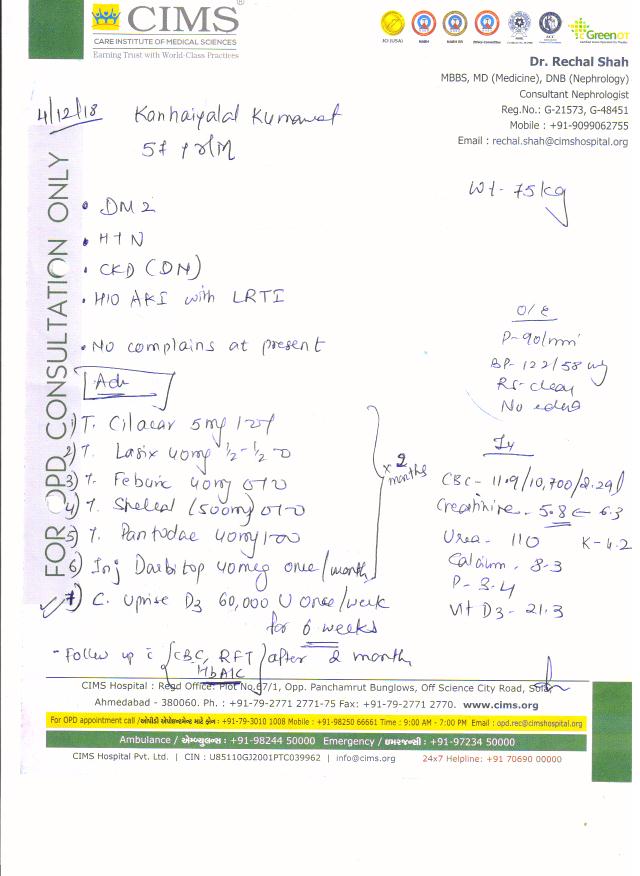 CIMS®
CARE INSTITUTE OF MEDICAL SCIENCES
Earning Trust with World-Class Practices
JCI (USA)
NABH
Ethics Committee
GreenOT
Dr. Rechal Shah
MBBS, MD (Medicine), DNB (Nephrology)
Consultant Nephrologist
Reg.No.: G-21573, G-48451
Mobile : +91-9099062755
Email : rechal.shah@cimshospital.org
FOR OPD CONSULTATION ONLY
4/12/18 Kanhaiyalal Kumawat
Wt- 75kg
• DM 2
• HTN
• CKD (DN)
• H/O AKI with LRTI
• No complains at present
O/E
P- 90/min
BP- 122/58
RS- clear
No edema
Adv
1) T. Cilacar 5mg
2) T. Lasix 40mg ½-½-0
3) T. Feburic 40mg 0-1-0
4) T. Shelcal (500mg) 0-1-0
5) T. Pantodac 40mg 1-0-0
6) Inj Darbitop 40mcg once/month
x 2 months
7) C. Uprise D3 60,000 U once/week
for 6 weeks
CBC- 11.9/10,700/2.29
Creatinine- 5.8 ← 6.3
Urea- 110 K- 4.2
Calcium- 8.3
P- 3.4
Vit D3- 21.3
- Follow up c̄ {CBC, RFT HbA1C} after 2 month
CIMS Hospital : Regd Office: Plot No.67/1, Opp. Panchamrut Bunglows, Off Science City Road, Sola,
Ahmedabad - 380060. Ph. : +91-79-2771 2771-75 Fax: +91-79-2771 2770. www.cims.org
For OPD appointment call /ઓપીડી એપોઈન્ટમેન્ટ માટે ફોન : +91-79-3010 1008 Mobile : +91-98250 66661 Time : 9:00 AM - 7:00 PM Email : opd.rec@cimshospital.org
Ambulance / એમ્બ્યુલન્સ : +91-98244 50000 Emergency / ઇમરજન્સી : +91-97234 50000
CIMS Hospital Pvt. Ltd. | CIN : U85110GJ2001PTC039962 | info@cims.org 24x7 Helpline: +91 70690 00000